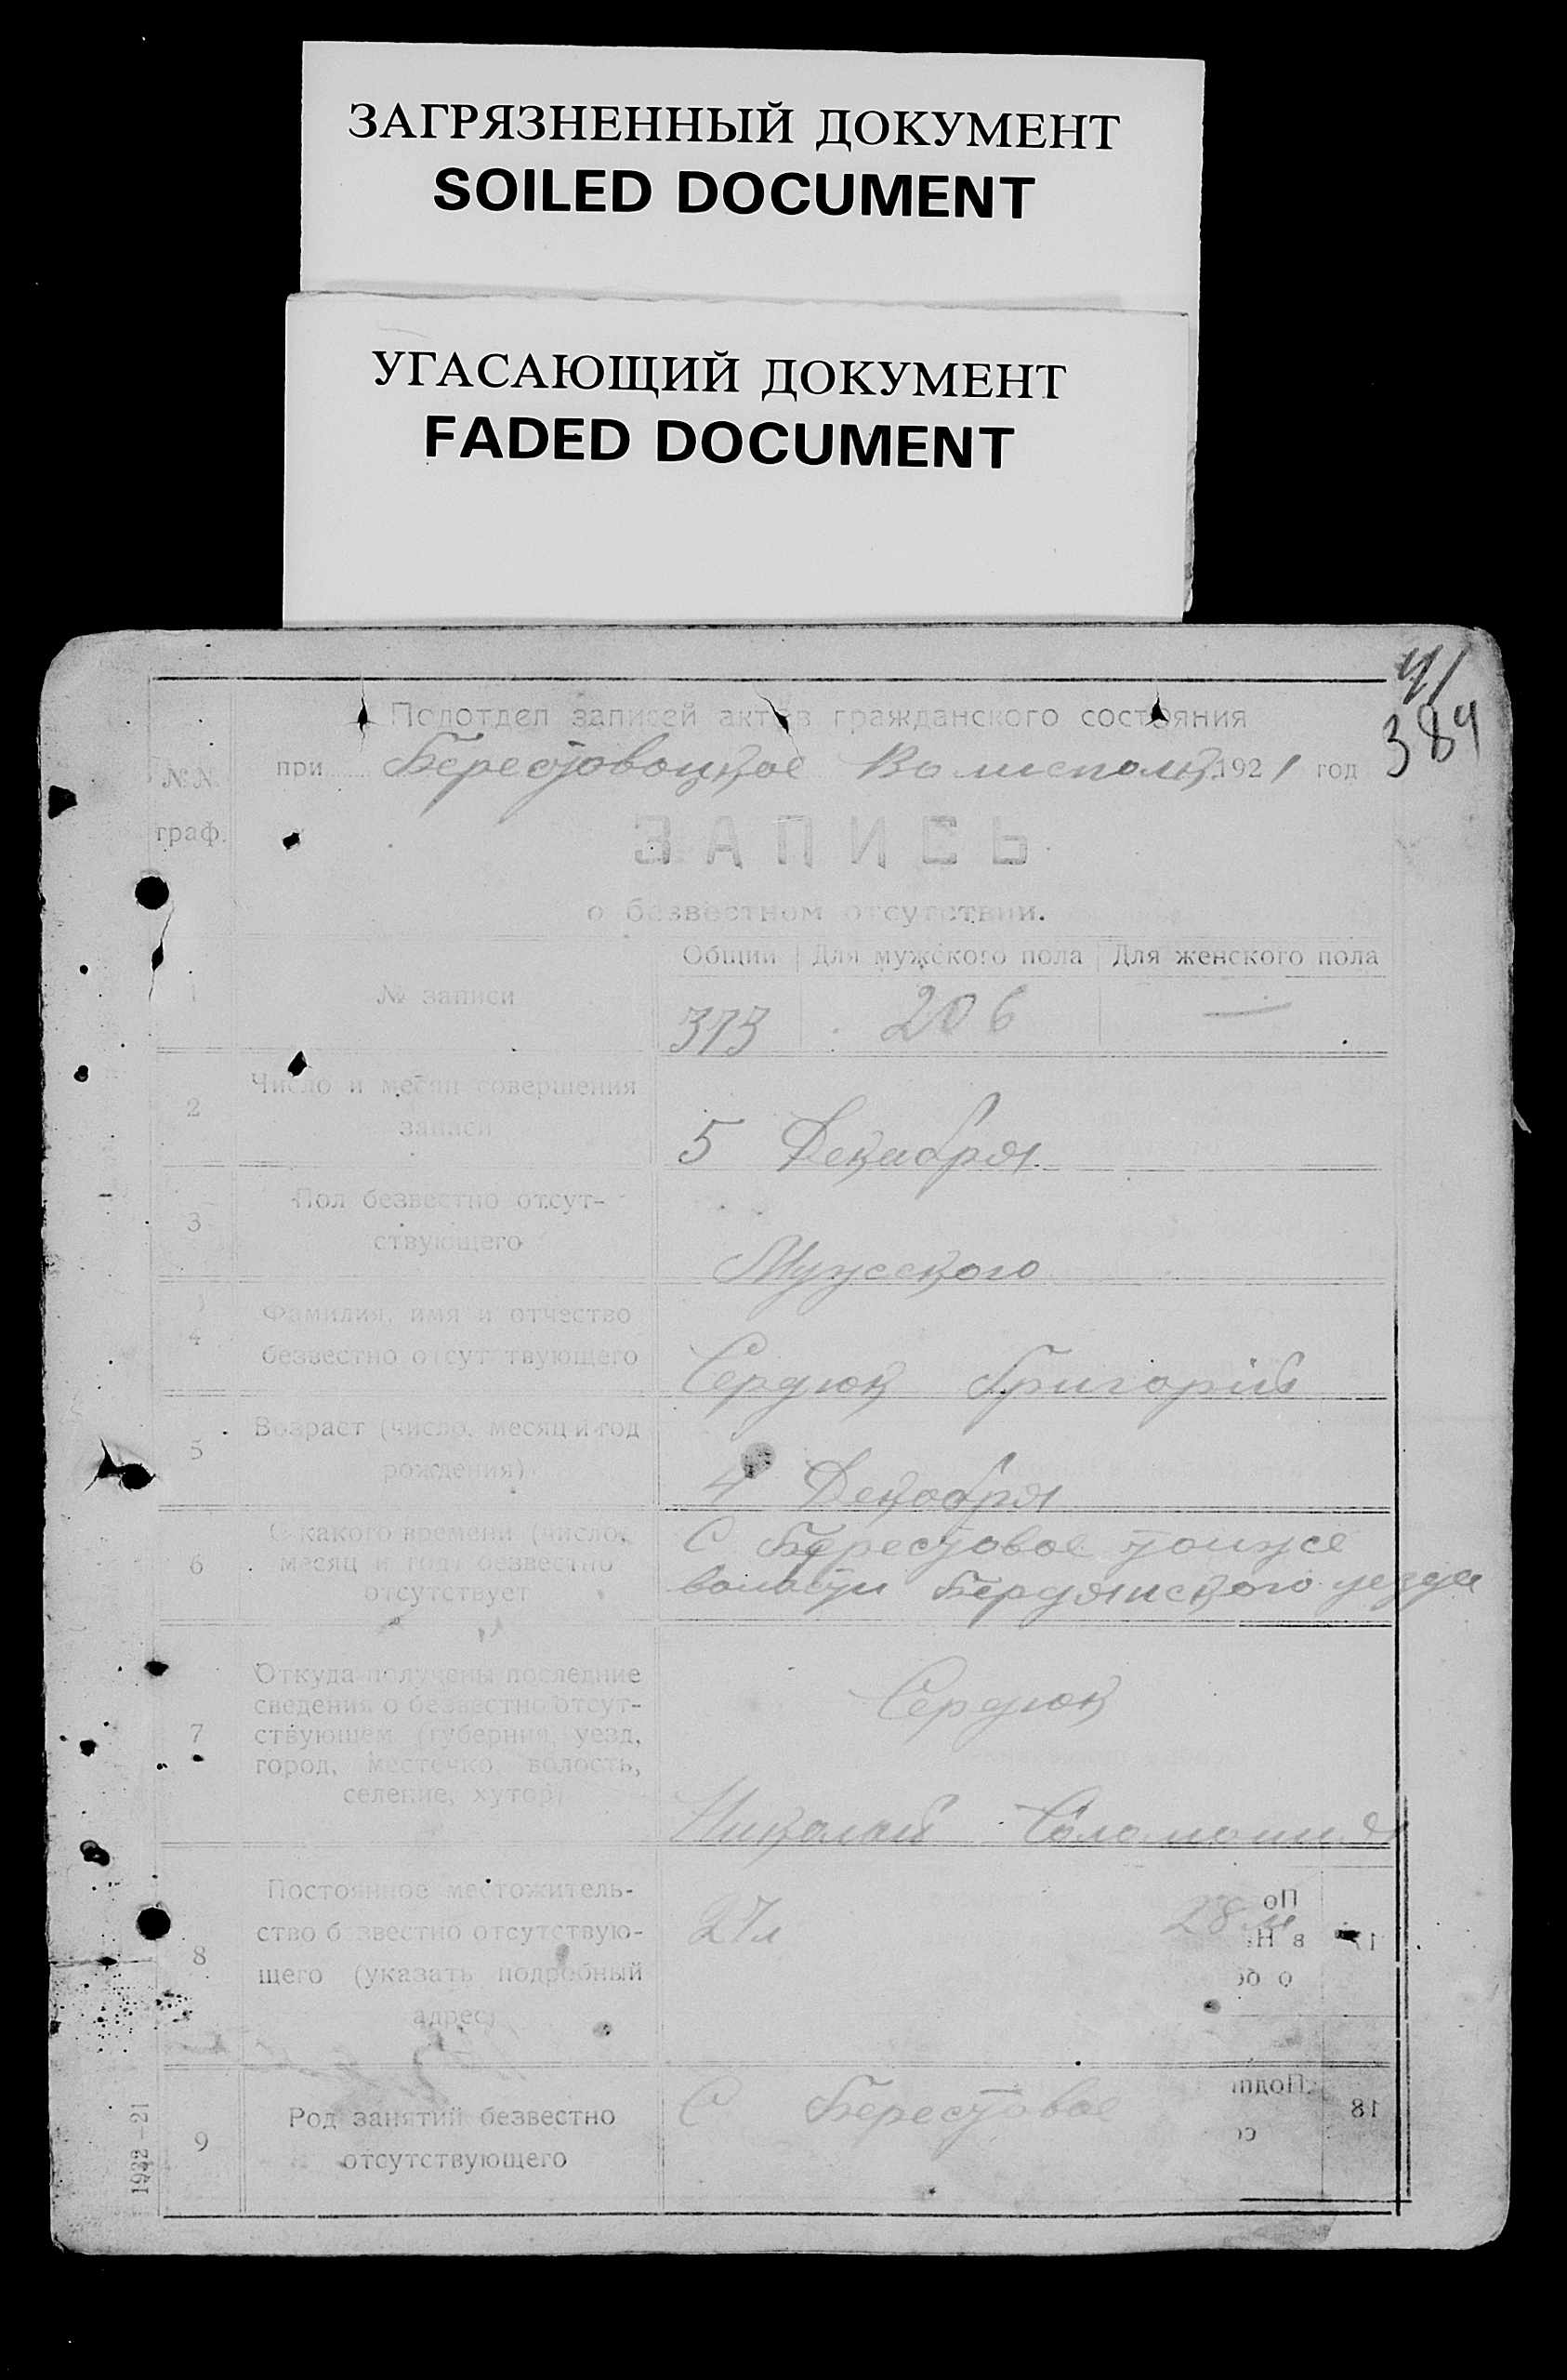 ЗАГРЯЗНЕННЫЙ ДОКУМЕНТ
SOILED DOCUMENT
УГАСАЮЩИЙ ДОКУМЕНТ
FADED DOCUMENT
384
Подотдел записей актов гражданского состояния
№№ граф.
при Берестовацкое Волисполк. 1921 год
ЗАПИСЬ
о безвестном отсутствии.
Общий Для мужского пола Для женского пола
1 № записи 373 206 —
2 Число и месяц совершения
записи
5 Декабря
3 Пол безвестно отсут-
ствующего
Мужского
4 Фамилия, имя и отчество
безвестно отсутствующего
Сердюк Григорій
5 Возраст (число, месяц и год
рождения)
4 Декабря
6 С какого времени (число,
месяц и год) безвестно
отсутствует
С Берестовое тоиже
волости Бердянского уезда
7 Откуда получены последние
сведения о безвестно отсут-
ствующем (губерния, уезд,
город, местечко, волость,
селение, хутор)
Сердюк
Николай Соломония
8 Постоянное местожитель-
ство безвестно отсутствую-
щего (указать подробный
адрес)
27л 28
9 Род занятий безвестно
отсутствующего
С Берестовое
По
в Н
о бе
17
Подпи
18
1932-21